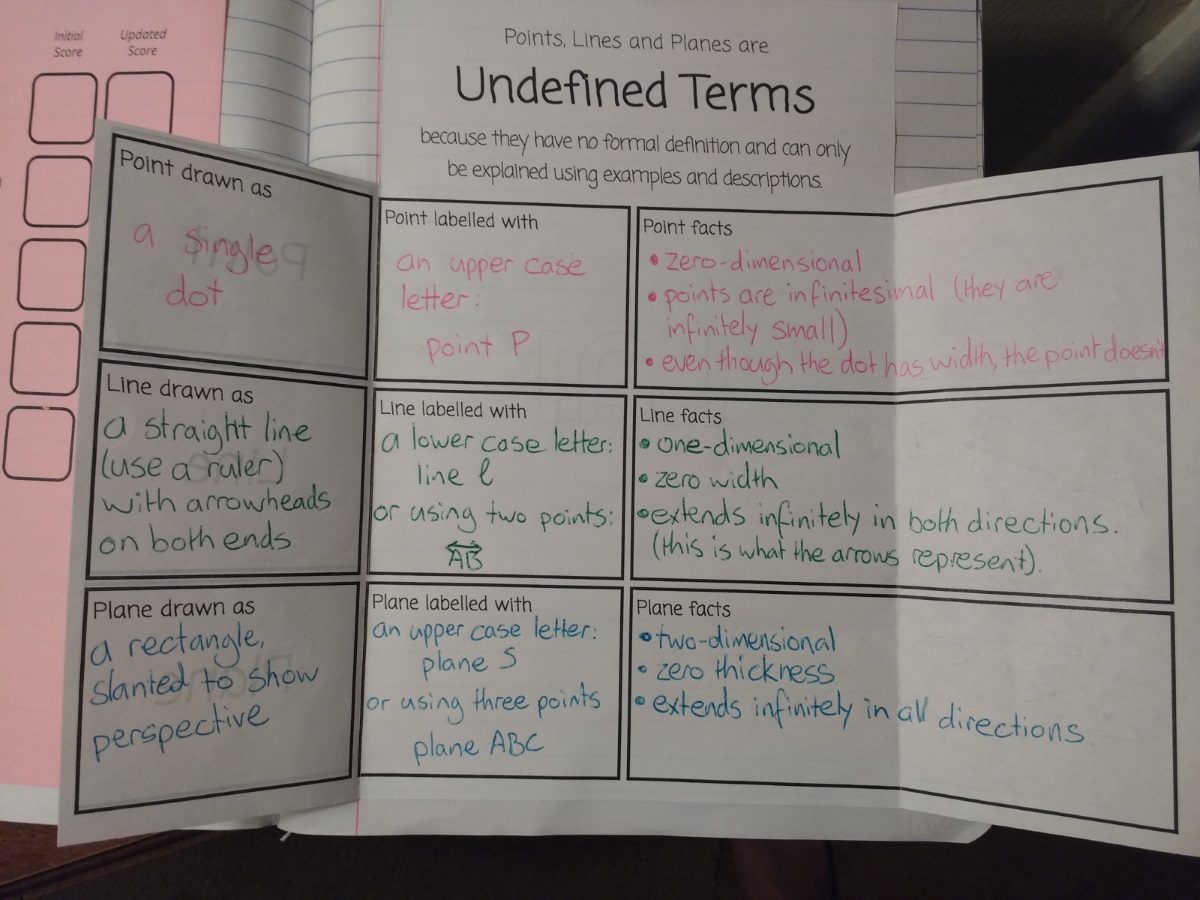 Initial
Score
Updated
Score
Points, Lines and Planes are
Undefined Terms
because they have no formal definition and can only
be explained using examples and descriptions.
Point drawn as
a single
dot
Point labelled with
an upper case
letter:
point P
Point facts
• zero-dimensional
• points are infinitesimal (they are
infinitely small)
• even though the dot has width, the point doesn't
Line drawn as
a straight line
(use a ruler)
with arrowheads
on both ends
Line labelled with
a lower case letter:
line ℓ
or using two points:
AB
Line facts
• one-dimensional
• zero width
• extends infinitely in both directions.
(this is what the arrows represent).
Plane drawn as
a rectangle,
slanted to show
perspective
Plane labelled with
an upper case letter:
plane S
or using three points
plane ABC
Plane facts
• two-dimensional
• zero thickness
• extends infinitely in all directions